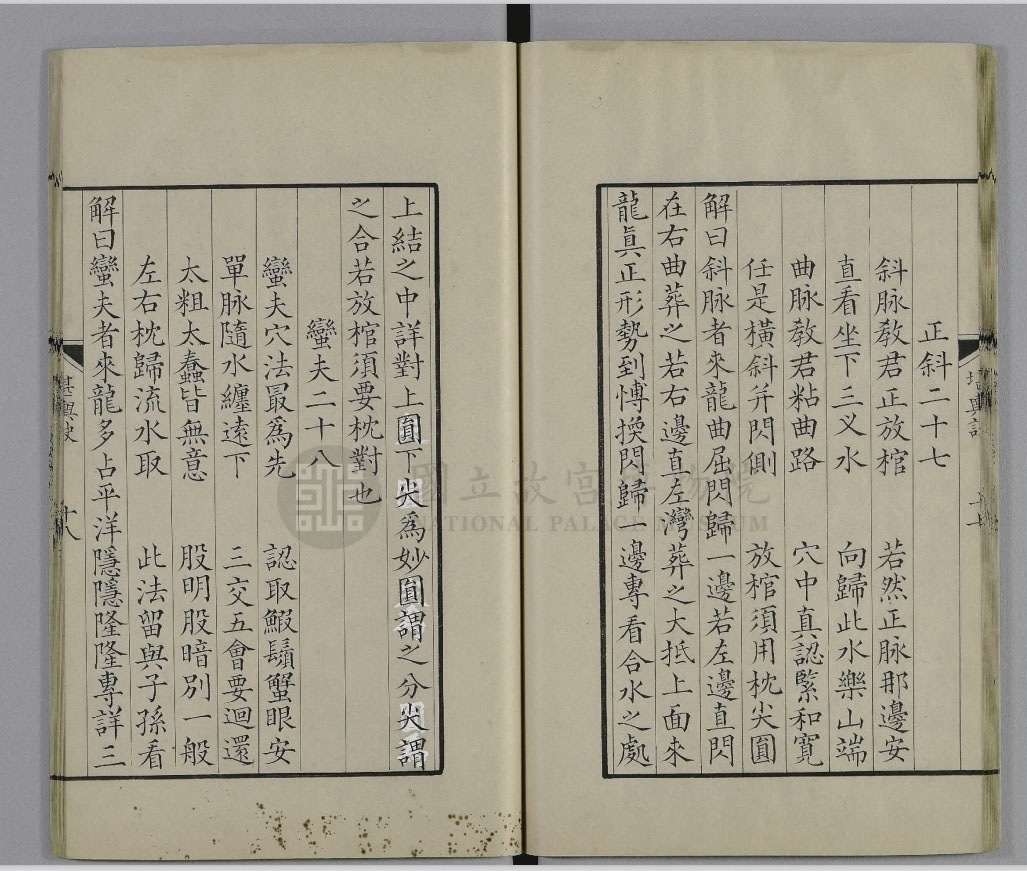 正斜二十七
斜脉教君正放棺　若然正脉那邊安
直看坐下三义水　向歸此水樂山端
曲脉教君粘曲路　穴中真認緊和寬
任是橫斜并閃側　放棺須用枕尖圓
解曰斜脉者來龍曲屈閃歸一邊若左邊直閃
在右曲葬之若右邊直左灣葬之大抵上面來
龍眞正形勢到愽換閃歸一邊專看合水之處
上結之中詳對上圓下尖爲妙圓謂之分尖謂
之合若放棺須要枕對也
蠻夫二十八
蠻夫穴法最爲先　認取鰕鬚蟹眼安
單脉隨水纏遠下　三交五會要迴還
太粗太蠢皆無意　股明股暗別一般
左右枕歸流水取　此法留與子孫看
解曰蠻夫者來龍多占平洋隱隱隆隆專詳三
十八
國立故宮博物院
NATIONAL PALACE MUSEUM